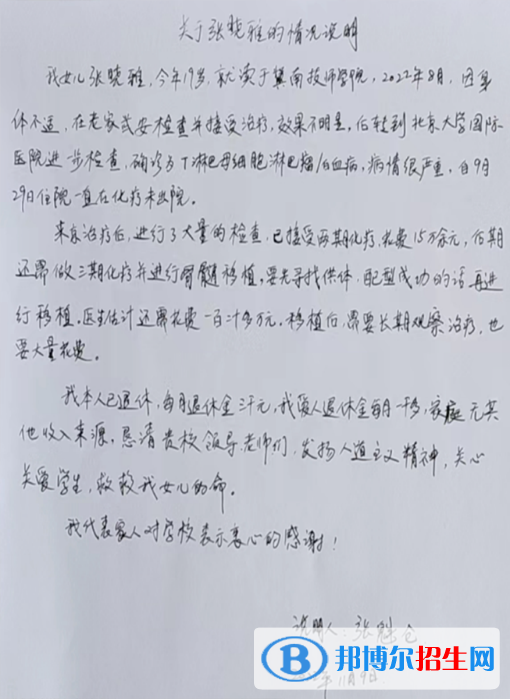 关于张晓雅的情况说明
我女儿张晓雅,今年19岁,就读于冀南技师学院,2022年8月,因身
体不适,在老家武安检查并接受治疗,效果不明显,后转到北京大学国际
医院进一步检查,确诊为T淋巴母细胞淋巴瘤/白血病,病情很严重,自9月
29日住院一直在化疗未出院。
来京治疗后,进行了大量的检查,已接受两期化疗,花费15万余元,后期
还需做三期化疗并进行骨髓移植,要先寻找供体,配型成功的话,再进
行移植。医生估计还需花费一百多万元。移植后,需要长期观察治疗,也
要大量花费。
我本人已退休,每月退休金三千元,我爱人退休金每月一千多,家庭无其
他收入来源,恳请贵校领导老师们,发扬人道主义精神,关心
关爱学生,救救我女儿的命。
我代表家人对学校表示衷心的感谢!
说明人:张
年11月9日
邦博尔招生网